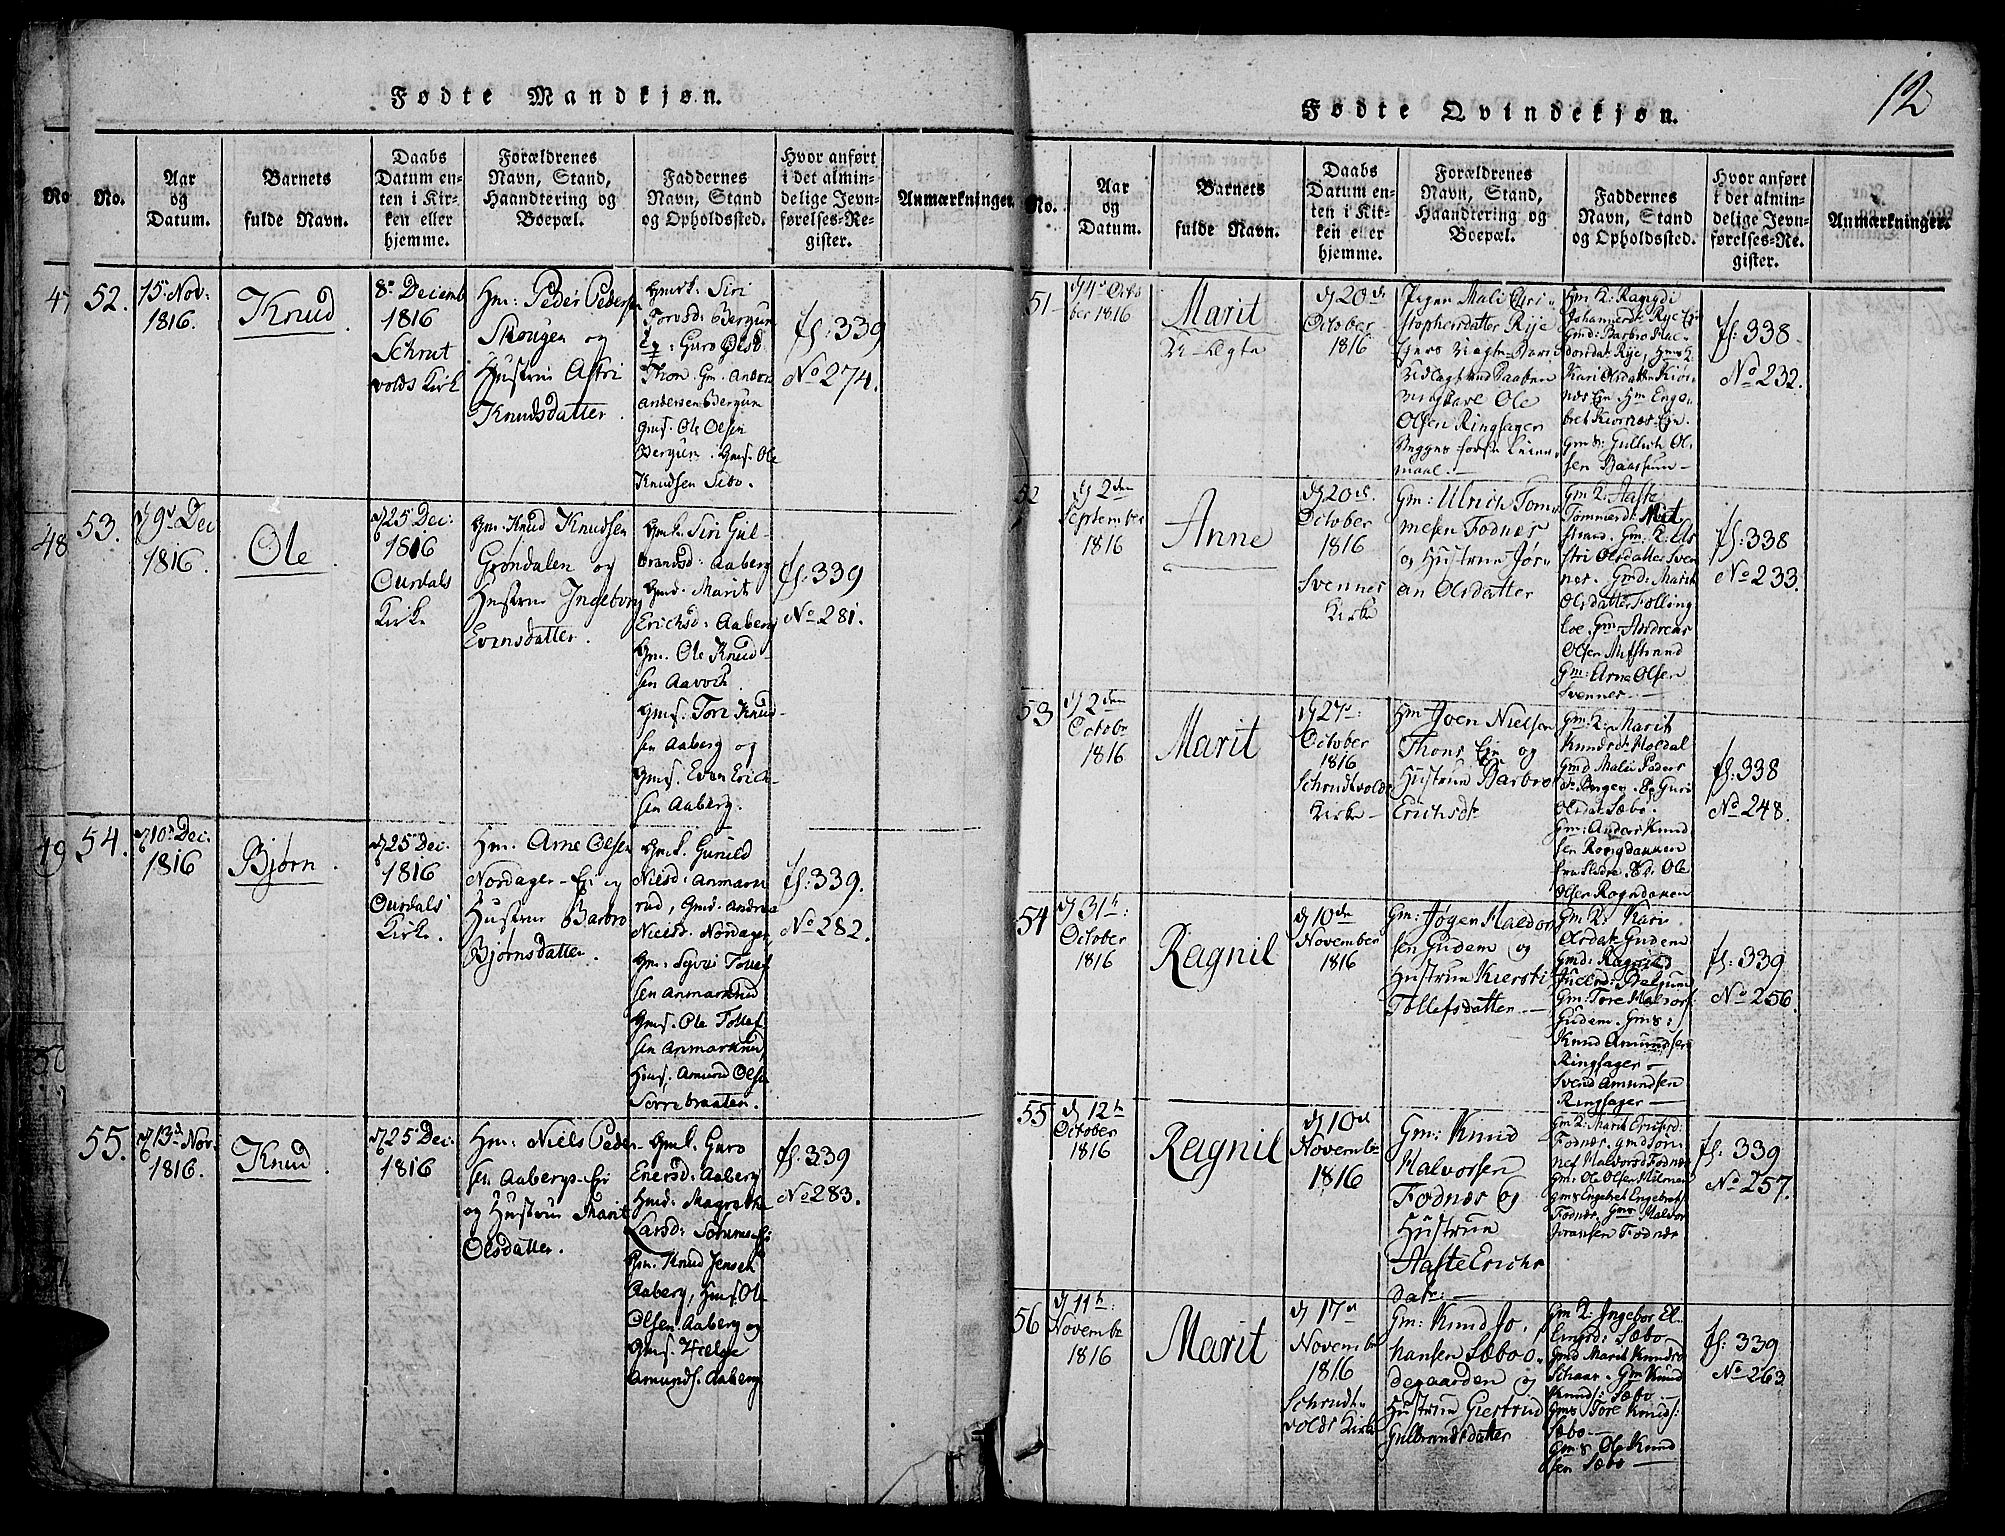 Fødte Mandkjøn.
No.
Aar
og
Datum.
Barnets
fulde Navn.
Daabs
Datum en-
ten i Kir-
ken eller
hjemme.
Forældrenes
Navn, Stand,
Haandtering og
Boepæl.
Faddernes
Navn, Stand
og Opholdssted.
Hvor anført
i det almin-
delige Jevn-
førelses-Re-
gister.
Anmærkninger.
52.
15 Nov:
1816.
Knud
8 Decemb
1816
Schrut
volds Kirk
Gm: Peder Peders
Skougen og
Hustrue Astri
Knudsdatter.
Gmk. Siri
Torvsd: Bergun
Guro Olsd
Thon. Gm. Andri
Andersen Bergun
Gms. Ole Olsen
Bergun. Gms. Ole
Knudsen Sibo.
fs: 339
No 274.
53.
9 Dec
1816.
Ole
25 Dec:
1816
Ourdals
Kirke
Gm. Knud Knudsen
Grøndalen og
Hustrue Ingeborg
Evensdatter.
Gmk. Siri Gul-
brandsd: Aaberg
Gmd. Marit
Erichsd: Aaberg
Gm. Ole Knud-
sen Aavoch
Gms. Tore Knud-
sen Aaberg og
Gms. Even Erich-
sen Aaberg.
fs: 339
No 281.
54.
10 Dec:
1816
Bjørn
25 Dec:
1816
Ourdals
Kirke.
Gm. Arne Olsen
Nordager Ei og
Hustrue Barbro
Bjørnsdatter.
Gmk. Gunild
Nielsd: Anmark
rud, Gmd. Andrea
Nielsd: Nordager,
Gm. Syver Tollef
sen Anmarkrud
Gms. Ole Tollef
sen Anmarkrud,
Gms. Amund Olsen
Sorrebraaten.
fs: 339.
No 282.
55.
13 Nov.
1816.
Knud
25 Dec:
1816
Gm: Niels Peder
sen Aabergs Ei
og Hustrue Marit
Olsdatter.
Gmk. Guro
Enersd: Aaberg
Gmd: Magrethe
Larsd:
Gm. Knud Jensen
Aaberg, Gms. Ole
Olsen Aaberg og
Gms. Helge
Amunds. Aaberg
fs. 339
No 283.
Fødte Qvindekjøn.
12
No.
Aar
og
Datum.
Barnets
fulde Navn.
Daabs
Datum en-
ten i Kir-
ken eller
hjemme.
Forældrenes
Navn, Stand,
Haandtering og
Boepæl.
Faddernes
Navn, Stand
og Opholdssted.
Hvor anført
i det almin-
delige Jevn-
førelses-Re-
gister.
Anmærkninger.
51
4 Octo
ber 1816
Marit
U-Ægte
20
October
1816
Pigen Mali Chri-
stophersdatter Rye
Ole
Olsen Ringsager
Begges første Leier-
maal.
Gm K: Rangdi
Johannesd: Rye Ei
Gmd: Barbro
Rye, Gms K.
Kari Olsdatter Kiør
næs Ei Gm Enge
bret Kiørnes Ei
Gms: Gullich Ol
sen Baassun
fs: 338
No 232.
52
2den
September
1816
Anne
20
October
1816
Svennes
Kirke
Gm: Ulrich Tom
mesen Fodnes
og Hustrue Jør
an Olsdatter
Gm K: Aaste
Tommesd: Mit
strand. Gm: K:
Olsdatter Sven
nes. Gmd: Marit
Olsdatter Følling
loe. Gm Andreas
Olsen Mitstrand
Gm: Arne Olsen
Svennes
fs: 338
No 233.
53
2den
October
1816
Marit
27
October
1816
Schrudtvolds
Kirke
Gm Joen Nielsen
Thons Ei og
Hustrue Barbro
Erichsdr
Gm: K: Marit
Knudsdr Moedal
Gmd Mali Peders
dr Bergen. Guri
Olsdat. Sæbo
Gm: Anders Knud
sen Rongdannen
fra Slidre. Ole
Olsen Rogndonen
fs: 338
No 248.
54
31
October
1816
Ragnil
10de
November
1816
Gm: Jøgen Halvor
sen Gudem og
Hustrue Kiersti
Tollefsdatter
Gm K: Kari
Olsdatr Gudem
Gmd: Ragnild
Juelsd: Belgum
Gm: Tore Halvors:
Gudem. Gms:
Knud Amundsen
Ringsager
Svend Amundsen
Ringsager
fs: 339
No 256.
55
12
October
1816
Ragnil
10
November
1816
Gm: Knud
Halvorsen
Fodnæs og
Hustrue
Aaste Erichs
datr:
Gm K: Marit
Fodnæs. Gmd
Halvorsd Fodnæs
Gm: Ole Olsen
Gms Engebret Engebrets
Fodnæs. Gms Halvor
Joransen Fodnæs
fs: 339
No 257.
56
11
November
1816
Marit
17
November
1816
Schrudt
volds Kirke
Gm: Knud Jo
hansen Sæbo ø-
degaarden og
Hustrue Giertrud
Gulbrandsdatter
Gm K: Ingebor El
Sæbo
Gmd Marit Knudsd
Schaar. Gm Knud
Knuds: Sæbo
Gms Tore Knuds:
Sæbo
Gms Ole Knud
sen Sæbo
fs: 339
No 263.